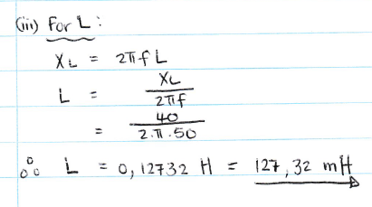 (iii) For L :
XL = 2πfL
L = XL / 2πf
= 40 / 2.π.50
∴ L = 0,12732 H = 127,32 mH